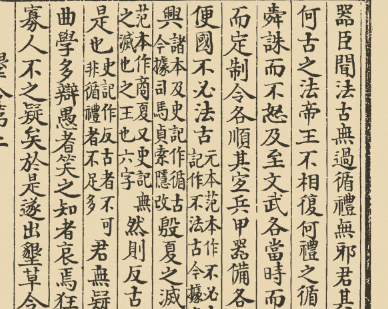 器臣聞法古無過循禮無邪君其
何古之法帝王不相復何禮之循
舜誅而不怒及至文武各當時而
而定制令各順其宜兵甲器備各
便國不必法古元本范本作不必記作不法古今據
興諸本及史記作循古今據司馬貞索隱改殷夏之滅
范本作商夏又史記無之滅也之王也六字然則反古
是也史記作反古者不可非循禮者不足多君無疑
曲學多辯愚者笑之知者哀焉狂
寡人不之疑矣於是遂出墾草令
墾令第二